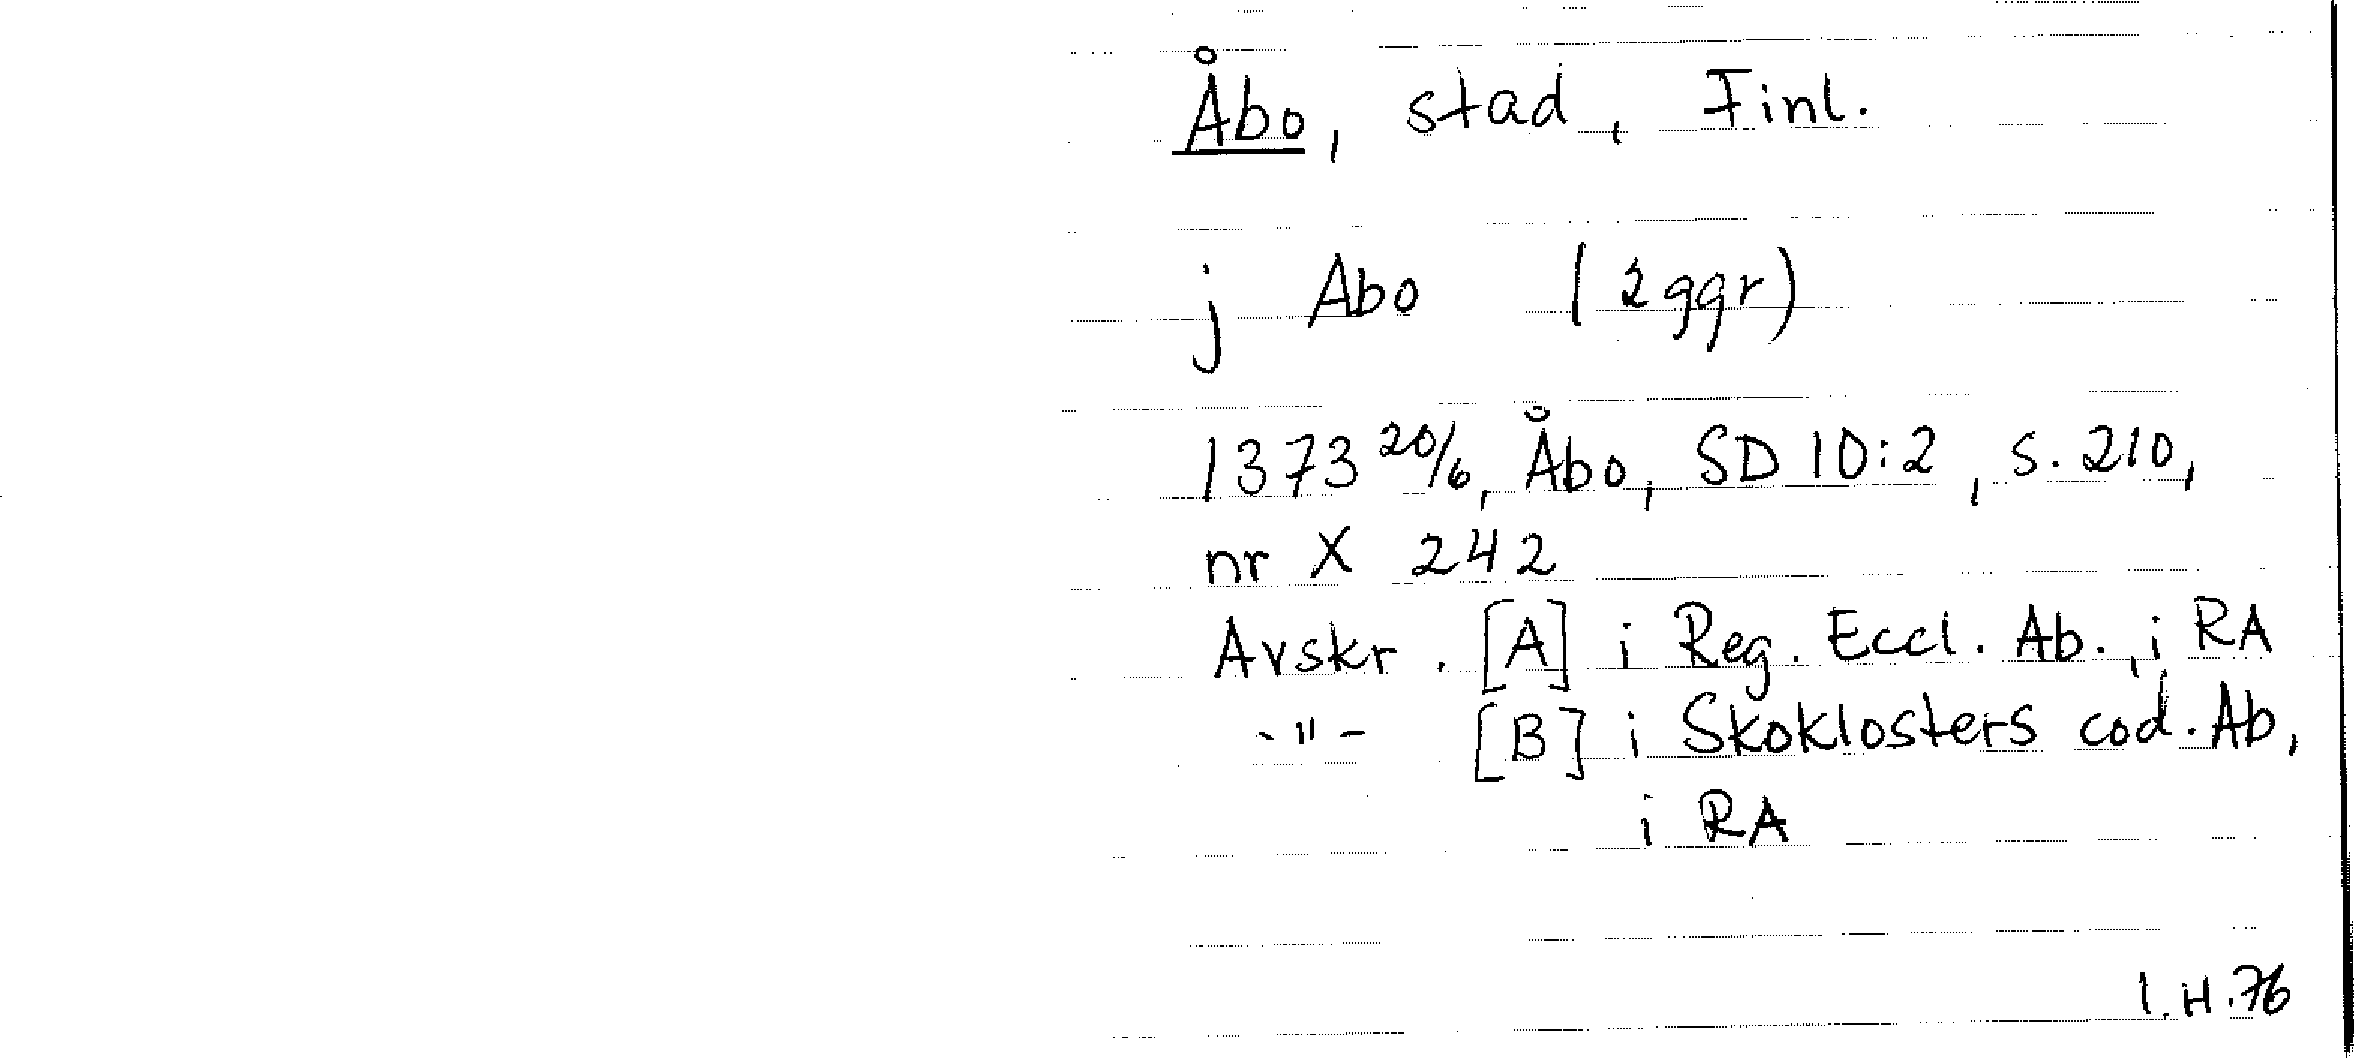 Åbo, stad, Finl.
j Abo (2ggr)
1373 20/6, Åbo, SD 10:2, s. 210,
nr X 242
Avskr. [A] i Reg. Eccl. Ab., i RA
-"- [B] i Skoklosters cod. Ab,
i RA
I.H.76